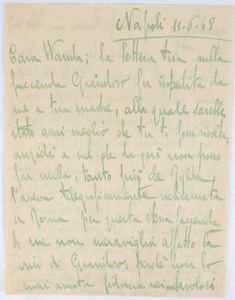 Napoli 11.6.48
Cara Wanda; la lettera tua sulla
faccenda fu spedita da
me a tua madre, alla quale sarebbe
stato assai meglio che tu ti fossi rivolta,
anziché a me che da qui non posso
far nulla, tanto più che
l'aveva telegraficamente richiamata
a Roma per questa stessa faccenda
A me non meraviglia affatto la
crisi di perché non ho
mai avuto fiducia nei